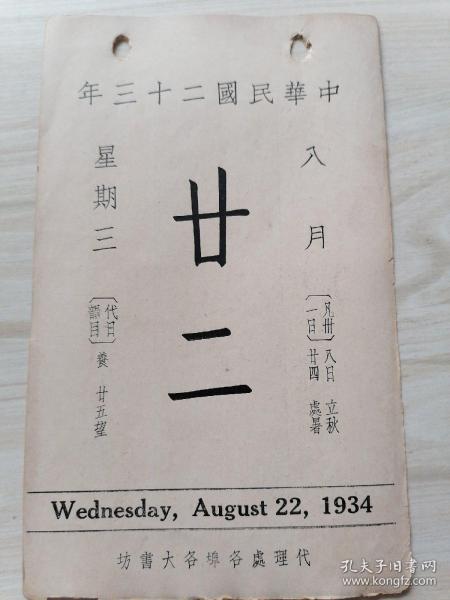 中華民國二十三年
八月
〔凡卅一日〕
八日 立秋
廿四 處暑
廿二
星期三
〔代日韻目〕
養 廿五望
Wednesday, August 22, 1934
代理處各埠各大書坊
孔夫子旧书网